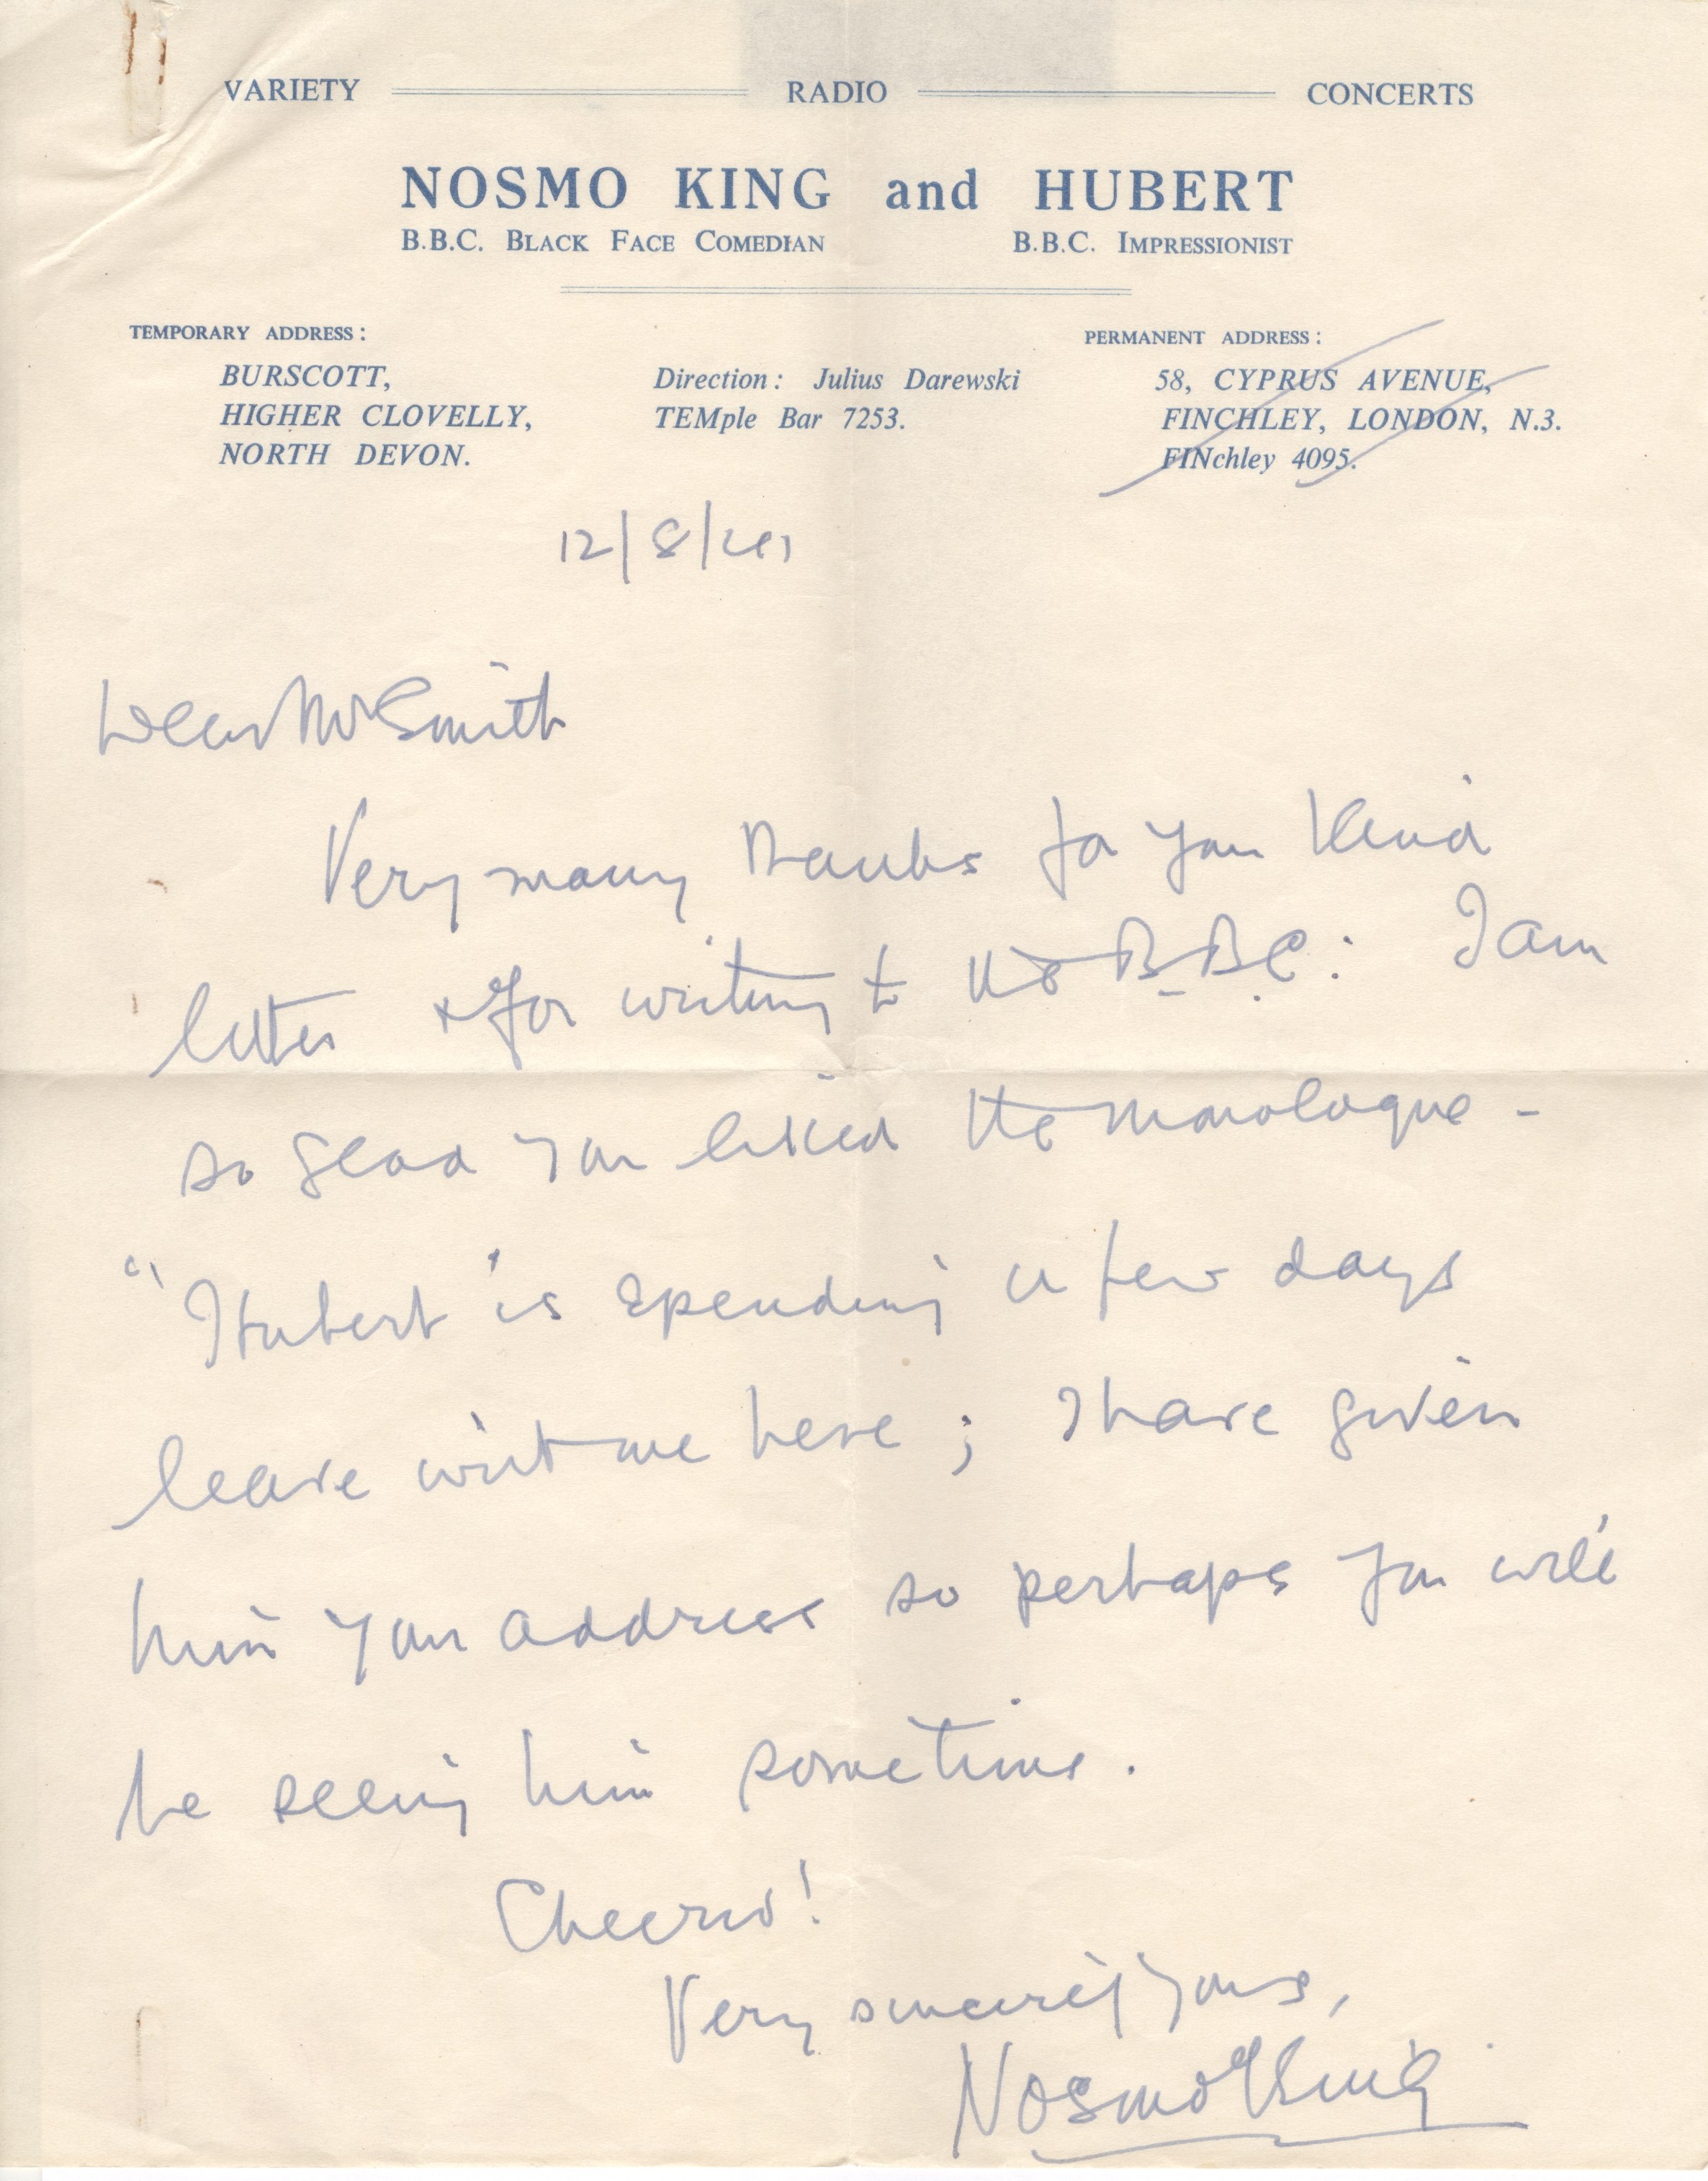 VARIETY RADIO CONCERTS
NOSMO KING and HUBERT
B.B.C. BLACK FACE COMEDIAN B.B.C. IMPRESSIONIST
TEMPORARY ADDRESS: PERMANENT ADDRESS:
BURSCOTT, Direction: Julius Darewski 58, CYPRUS AVENUE,
HIGHER CLOVELLY, TEMple Bar 7253. FINCHLEY, LONDON, N.3.
NORTH DEVON. FINchley 4095.
12/8/41
Dear Mr Smith
Very many thanks for your kind
letter & for writing to the B.B.C. I am
so glad you liked the monologue -
"Hubert" is spending a few days
leave with me here; I have given
him your address so perhaps you will
be seeing him sometime.
Cheerio!
Very sincerely yours,
Nosmo King